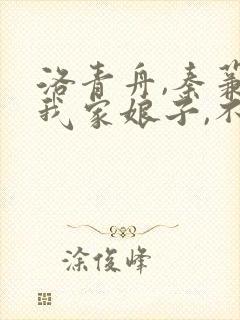 洛青舟,秦蒹
我家娘子,不
涂俊峰